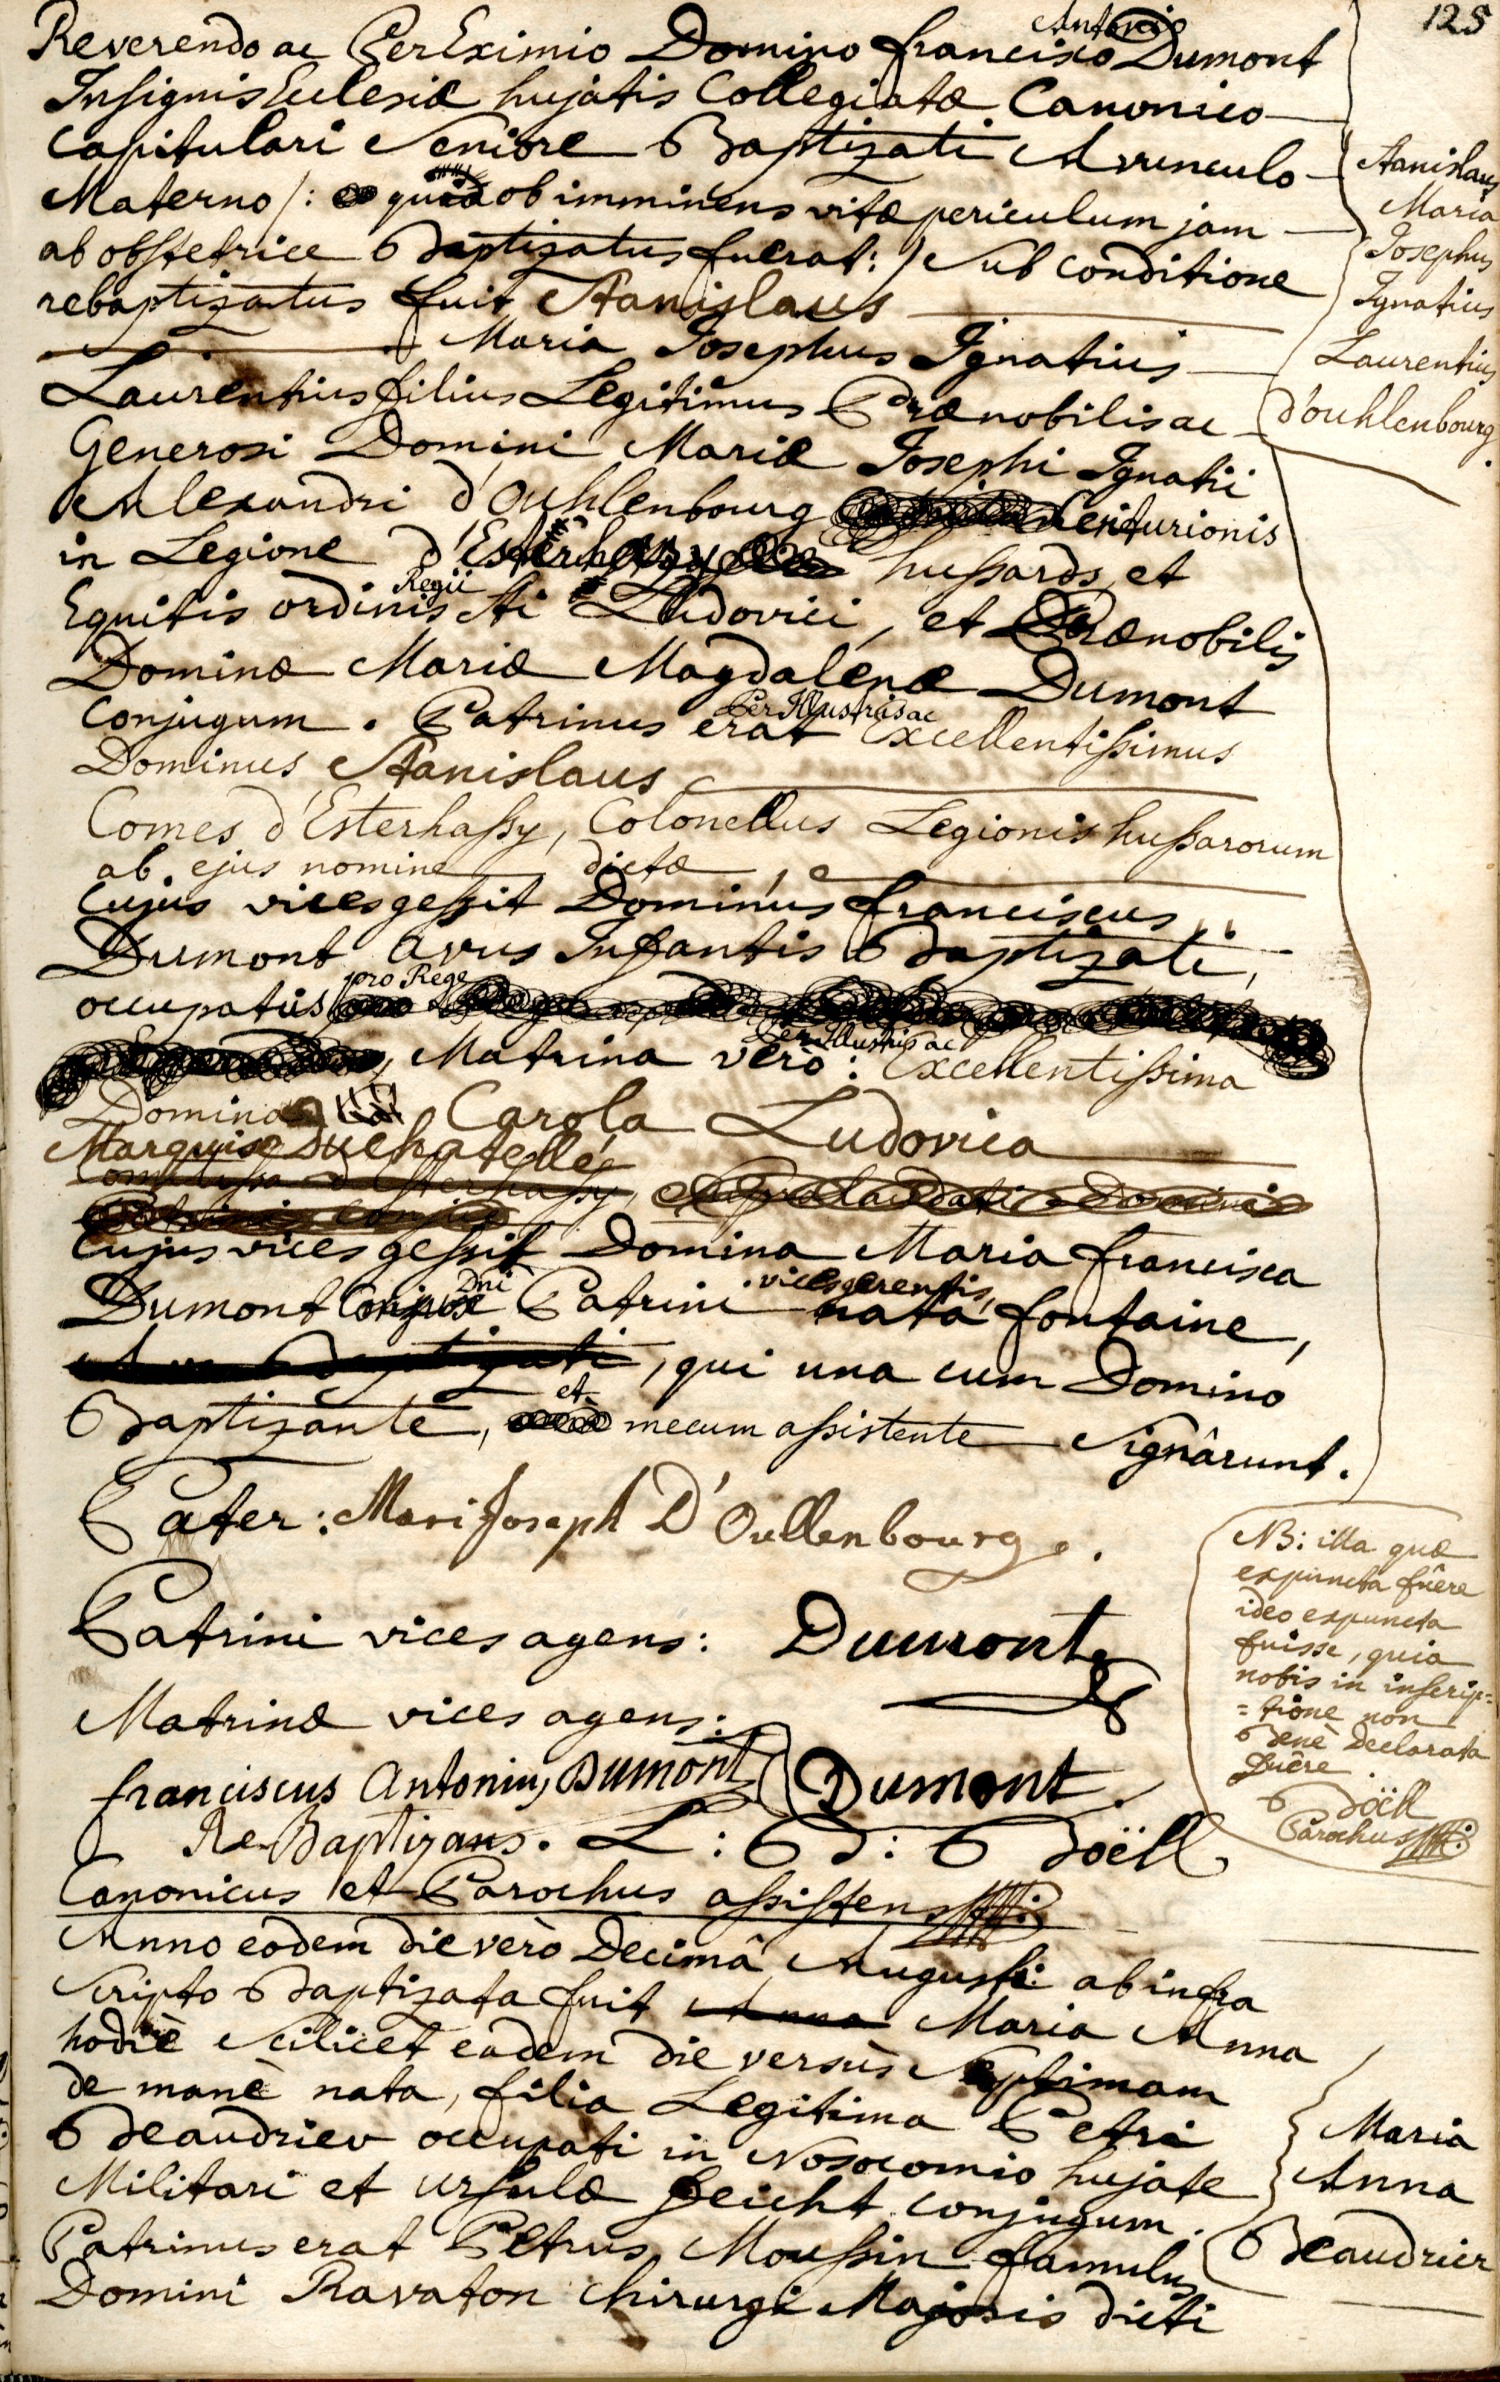 125
Antonio
Reverendo ac PerEximio Domino francisco Dumont
Insignis Eclesiæ hujatis Collegiatæ Canonico
Capitulari Seniore Baptizati Avunculo
Materno /: quia ob imminens vitæ periculum jam
ab obstetrice Baptizatus fuerat: / Sub conditione
rebaptizatus fuit Stanislaus
Maria Josephus Ignatius
Laurentius filius Legitimus Prænobilis ac
Generosi Domini Mariæ Josephi Ignatii
Alexandri d'Ouhlenbourg Centurionis
in Legione d'Esterhazy hussards, et
Regii
Equitis ordinis Sti Ludovici, et Prænobilis
Dominæ Mariæ Magdalenæ Dumont
PerIllustris ac
Conjugum. Patrinus erat Excellentissimus
Dominus Stanislaus
Comes d'Esterhassy, Colonellus Legionis hussarorum
ab ejus nomine dictæ,
Cujus vices gessit Dominus franciscus
Dumont avus Infantis Baptizati,
pro Rege
occupatus
PerIllustris ac
, Matrina verò: Excellentissima
Domina Carola Ludovica
Marquise Duchatellé
Comitissa d'Esterhassy, supralaudati Domini
Patrini Conjux
Cujus vices gessit Domina Maria francisca
Dni vicesgerentis,
Dumont Conjux Patrini nata fontaine,
Ava Baptizati, qui una cum Domino
et
Baptizante, mecum assistente Signârunt.
Pater: Mari Joseph D'Oullenbourg.
Patrini vices agens: Dumont
Matrinæ vices agens:
franciscus Antonius Dumont Dumont
Re-Baptizans. L: B: Boëll
Canonicus et Parochus assistens
Anno eodem die verò Decimâ Augusti ab infra
Scripto Baptizata fuit Anna Maria Anna
hodiè Scilicet eadem die versùs Septimam
de manè nata, filia Legitima Petri
Beaudrier occupati in Nosocomio hujate
Militari et Ursulæ feicht conjugum.
Patrinus erat Petrus Moussin famulus
Domini Ravaton Chirurgi Majoris dicti
Stanislaus
Maria
Josephus
Ignatius
Laurentius
d'ouhlenbourg.
NB: illa quæ
expuncta fuêre
ideo expuncta
fuisse, quia
nobis in inscrip=
=tione non
benè declarata
fuêre.
Boëll
Parochus
Maria
Anna
Beaudrier